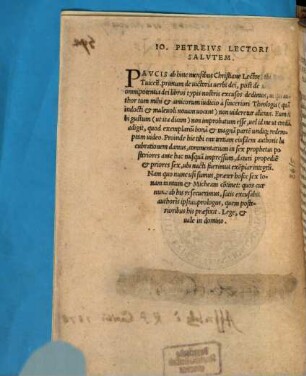 IO. PETREIVS LECTORI
SALVTEM.
PAVCIS ab hinc mensibus Christiane Lector,
primum de victoria verbi dei, post de
omnipotentia dei libros typis nostris excusos dedimus,
tum mihi & amicorum iudicio à synceriori Theologia (quā
indocti & maleuoli nouam uocant) non uideretur alieni.
bi gustum (ut ita dicam) non improbatum esse, uel id me ut credā,
adigit, quod exemplariū bonā & magnā partē undiq; redem
ptam uideo. Proinde hic tibi rursum eiusdem authoris lu
cubrationem damus, commentarium in sex prophetas po
steriores ante hac nusquā impressum, daturi propediē
& priores sex, ubi nacti fuerimus exēplar integrū.
Nam quo nunc usi sumus, præter hosce sex Io
nam tantum & Michæam obtinet: quos cur
nunc ab his resecuerimus, satis excusabit
authoris ipsius prologus, quem poste
rioribus his præfixit. Lege, &
uale in domino.